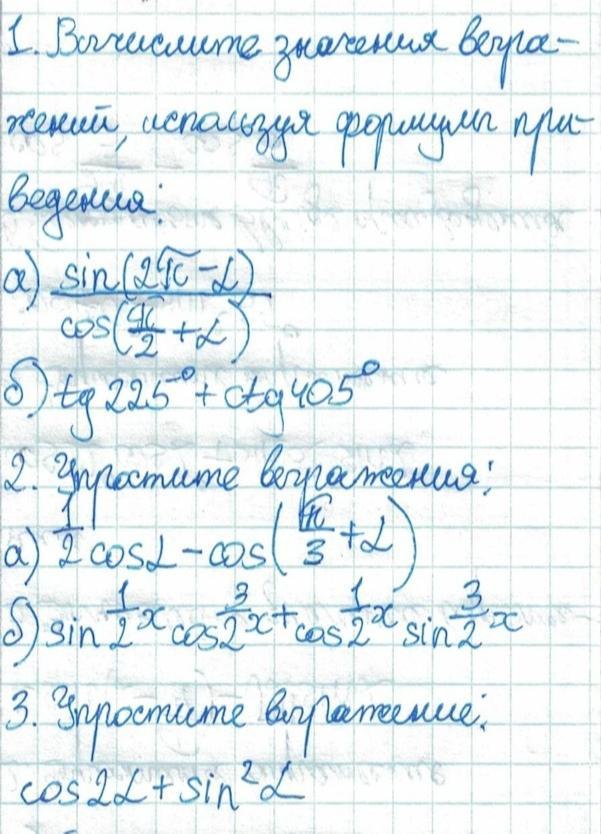 1. Вычислите значения выра-
жений, используя формулы при-
ведения:
а) sin(2π-α)/cos(π/2+α)
б) tg225°+ctg405°
2. Упростите выражения:
а) 1/2 cosα-cos(π/3+α)
б) sin 1/2 x cos 3/2 x+cos 1/2 x sin 3/2 x
3. Упростите выражение:
cos2α+sin²α